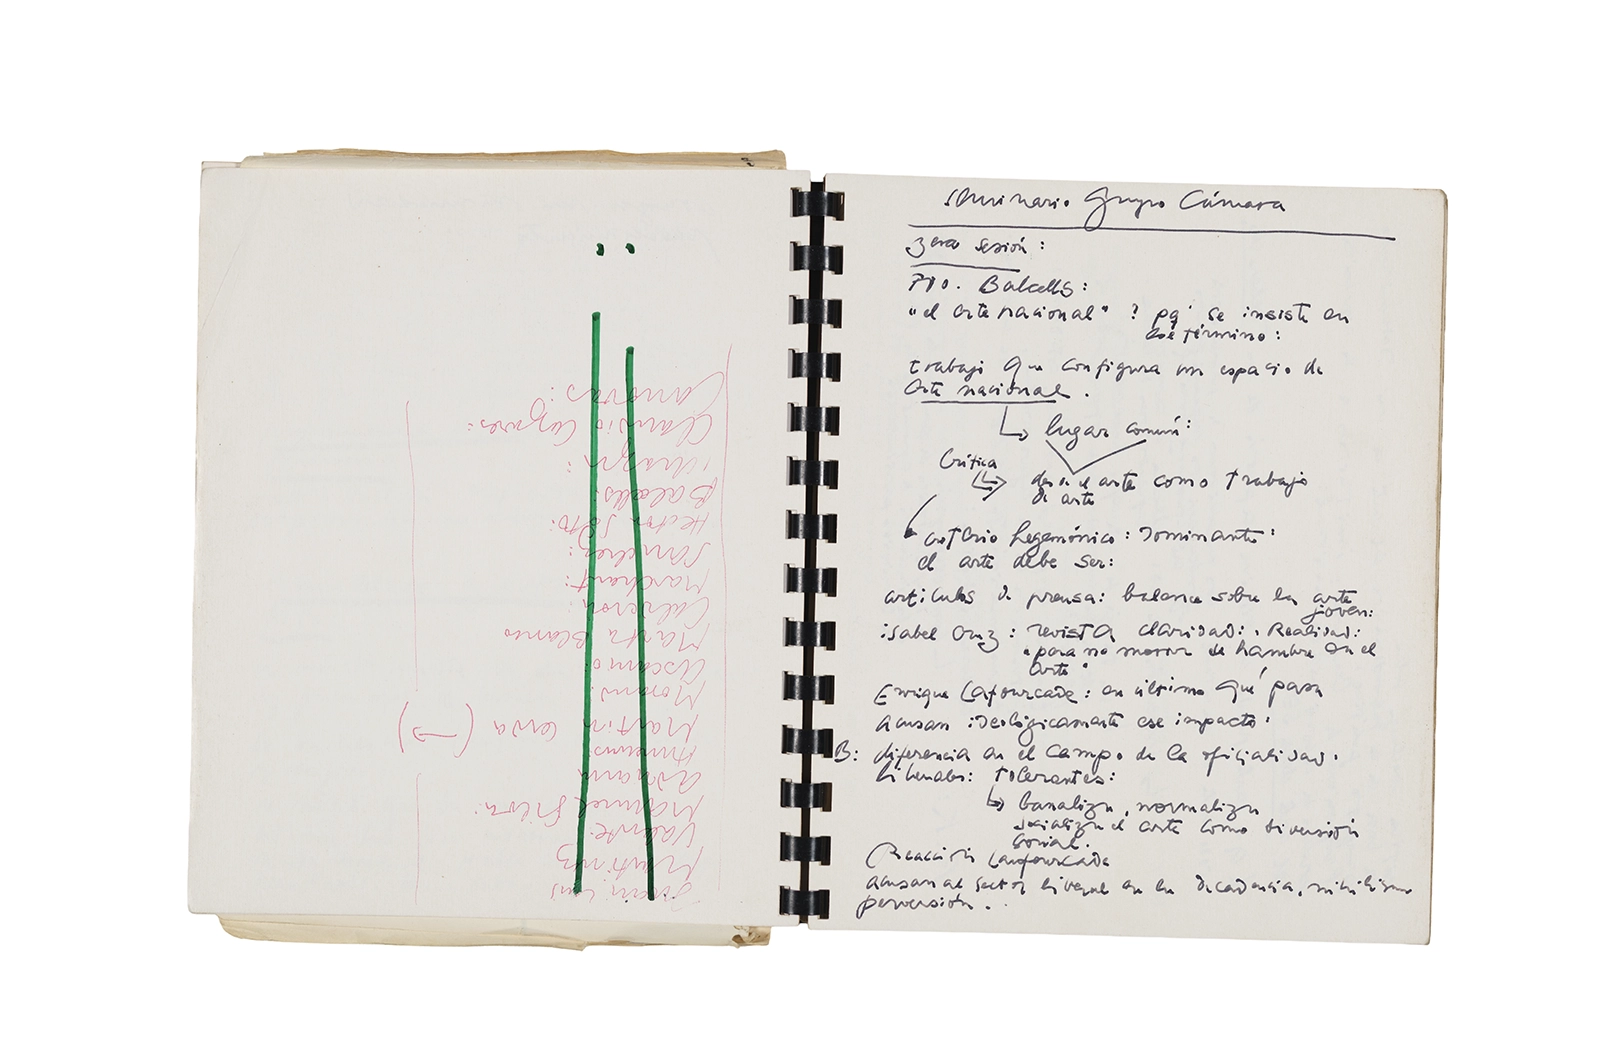 Seminario Grupo Cámara
3era sesión:
Fdo. Balcells:
"el arte nacional" ? pq' se insiste en
ese término:
trabajo que configura un espacio de
arte nacional.
lugar común:
Crítica
desde el arte como trabajo
de arte
criterio hegemónico: Dominante:
el arte debe ser:
artículos de prensa: balance sobre la arte
joven:
isabel Cruz: revista claridad: . Realidad:
"para no morir de hambre en el
arte"
Enrique Lafourcade: en último qué pasa
acusan ideológicamente ese impacto:
B: diferencia en el campo de la oficialidad.
liberales: tolerantes:
banaliza, normaliza
socializa el arte como diversión
social.
Reacción Lafourcade
acusan al sector liberal en la decadencia, nihilismo
perversión.
Luis
Martinez
Valente:
Manuel Silva:
Adriana
Martin Cerda (→)
Morand:
Ascanio:
Marta Blanco
Calderon
Marchant:
Sanchez:
Hector Soto:
Balcells:
Claudio
Canovas: